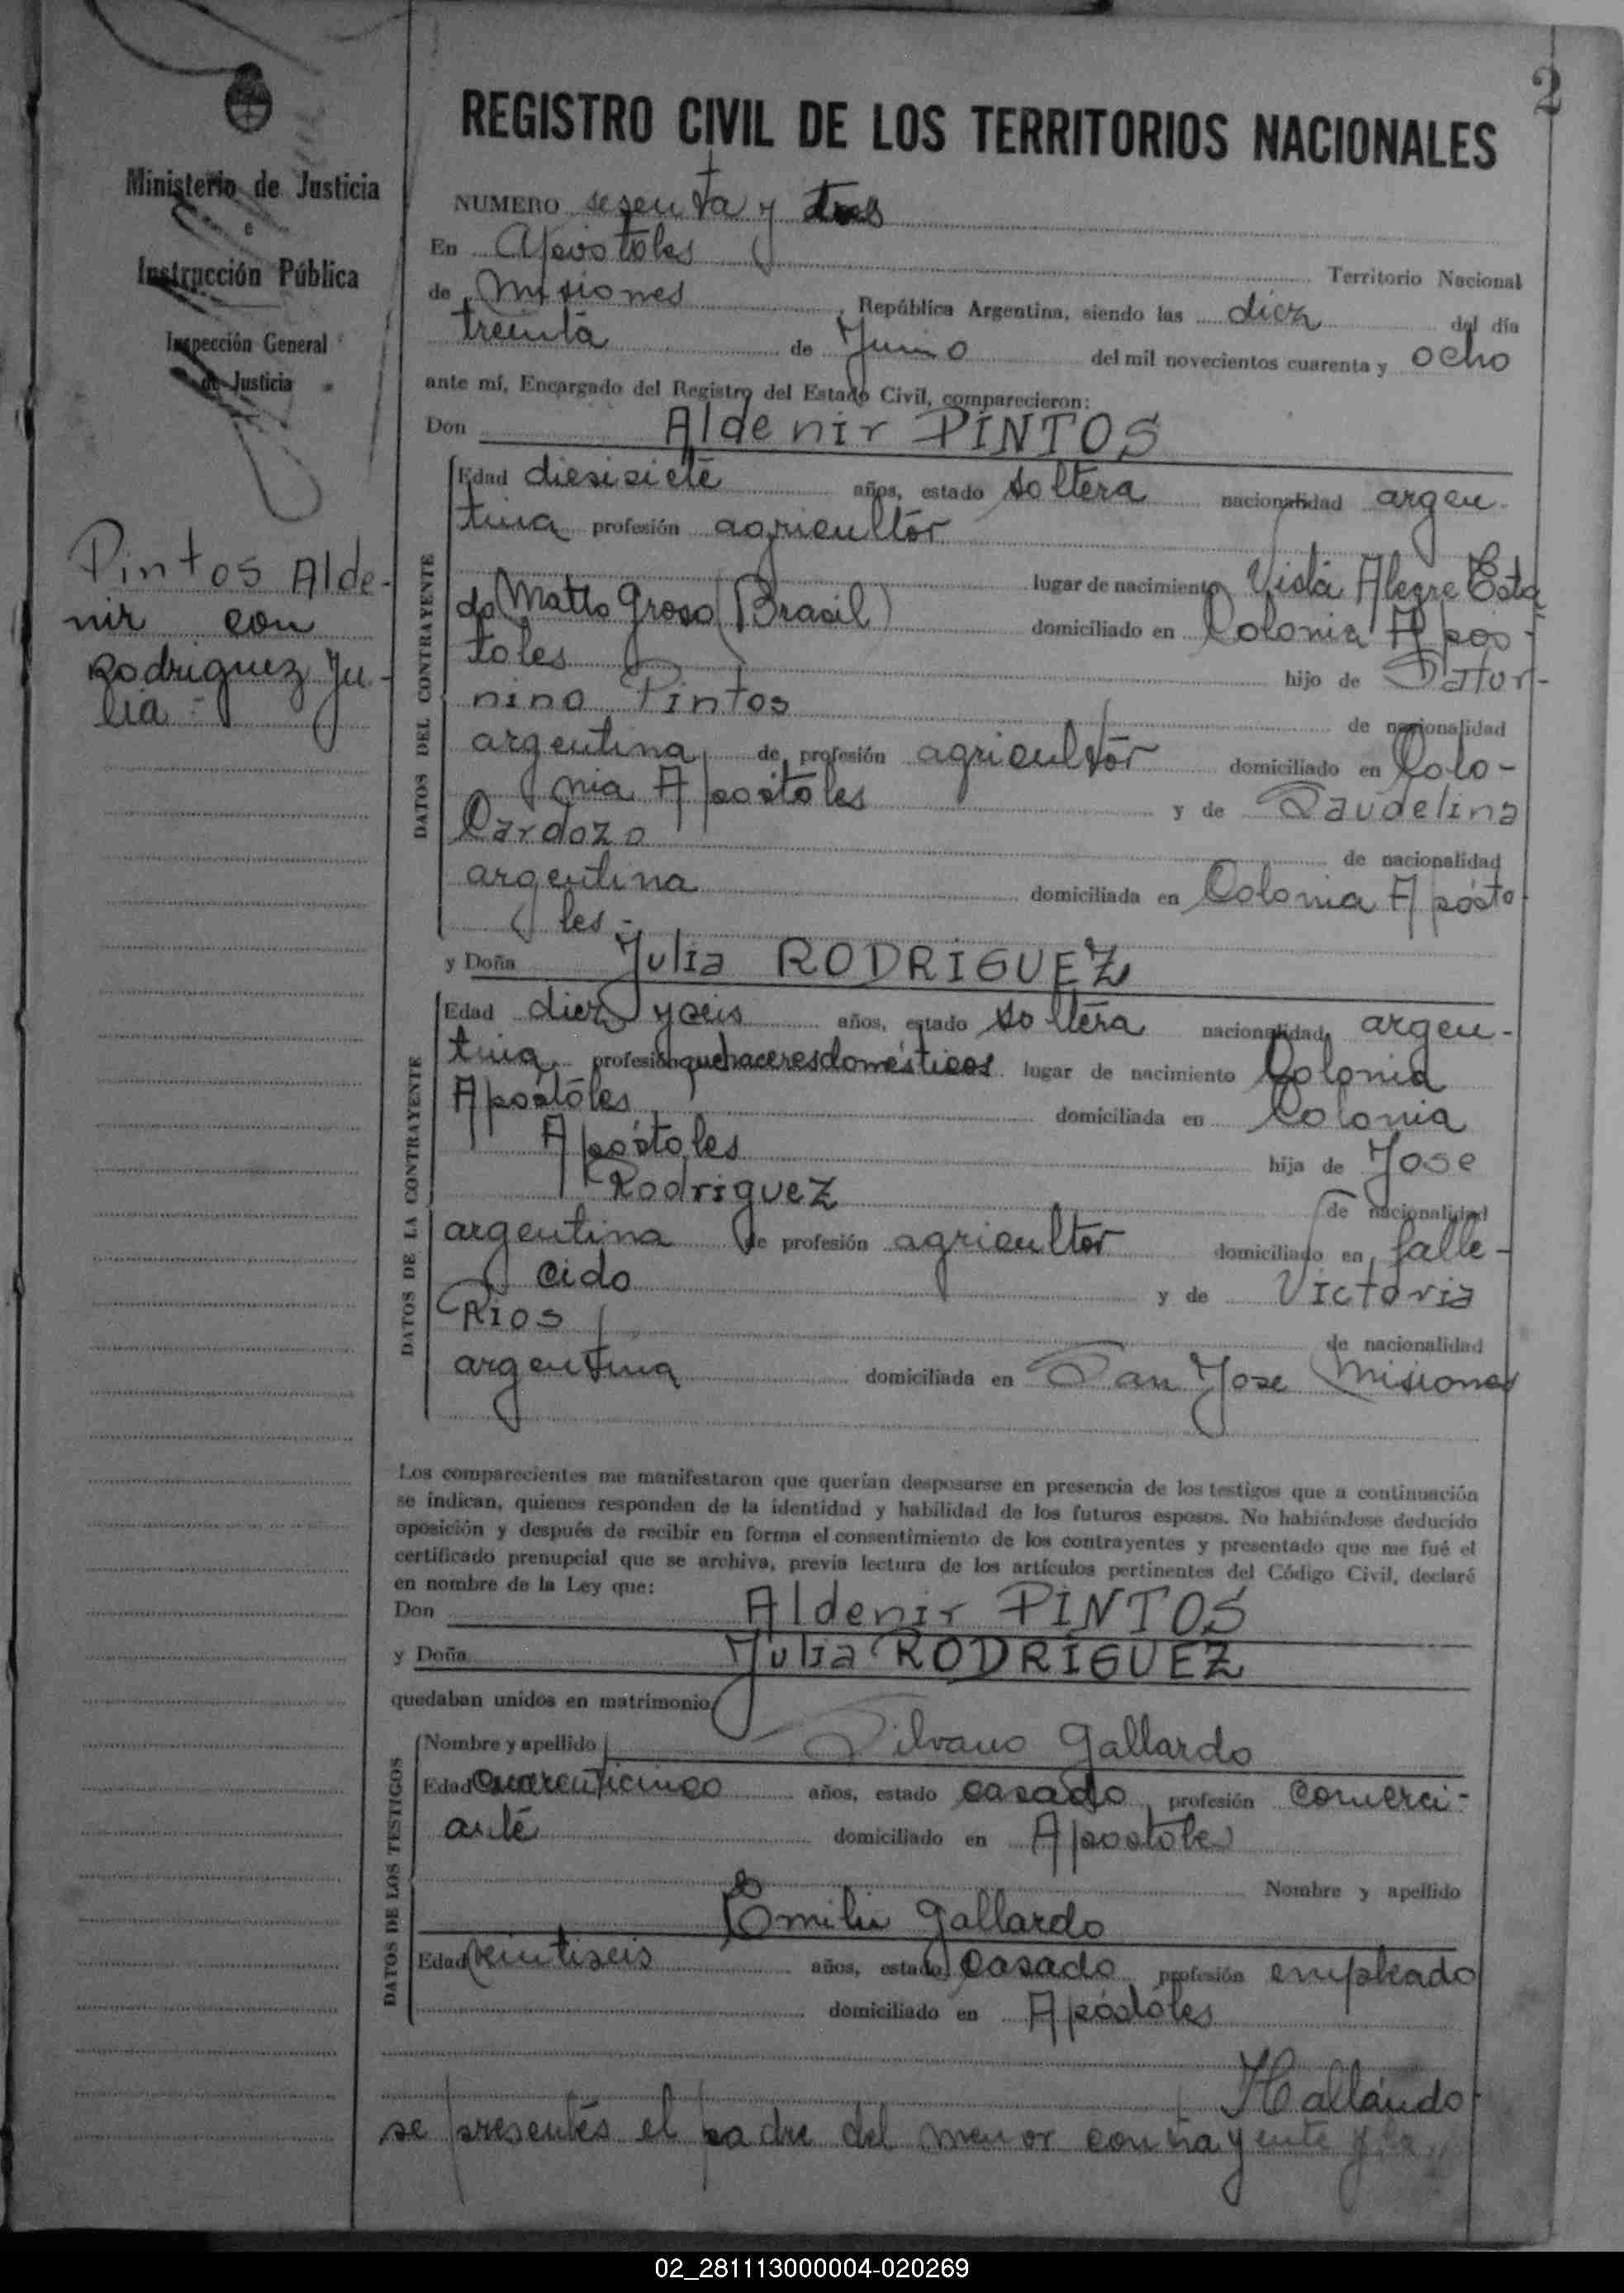 2
Ministerio de Justicia
e
Instrucción Pública
Inspección General
de Justicia
Pintos Alde-
nir con
Rodriguez Ju-
lia-
REGISTRO CIVIL DE LOS TERRITORIOS NACIONALES
NUMERO sesenta y tres
En Apóstoles Territorio Nacional
de Misiones, República Argentina, siendo las diez del día
treinta de Junio del mil novecientos cuarenta y ocho
ante mí, Encargado del Registro del Estado Civil, comparecieron:
Don Aldenir PINTOS
DATOS DEL CONTRAYENTE
Edad diesisiete años, estado soltera nacionalidad argen-
tina profesión agricultor
lugar de nacimiento Vista Alegre Esta
do Matto Groso (Brasil) domiciliado en Colonia Apos-
toles hijo de Satur-
nino Pintos de nacionalidad
argentina de profesión agricultor domiciliado en Colo-
nia Apóstoles y de Saudelina
Cardozo de nacionalidad
argentina domiciliada en Colonia Apósto
les-
y Doña Julia RODRIGUEZ
DATOS DE LA CONTRAYENTE
Edad diez y seis años, estado soltera nacionalidad argen-
tina profesión quehaceres domésticos lugar de nacimiento Colonia
Apostóles domiciliada en Colonia
Apóstoles hija de Jose
Rodriguez de nacionalidad
argentina de profesión agricultor domiciliado en falle-
cido y de Victoria
Rios de nacionalidad
argentina domiciliada en San Jose Misiones
Los comparecientes me manifestaron que querían desposarse en presencia de los testigos que a continuación
se indican, quienes responden de la identidad y habilidad de los futuros esposos. No habiéndose deducido
oposición y después de recibir en forma el consentimiento de los contrayentes y presentado que me fué el
certificado prenupcial que se archiva, previa lectura de los artículos pertinentes del Código Civil, declaré
en nombre de la Ley que:
Don Aldenir PINTOS
y Doña Julia RODRIGUEZ
quedaban unidos en matrimonio
DATOS DE LOS TESTIGOS
Nombre y apellido Silvano Gallardo
Edad cuarenticinco años, estado casado profesión comerci-
ante domiciliado en Apostoles
Nombre y apellido
Emilio Gallardo
Edad veintiseis años, estado casado profesión empleado
domiciliado en Apóstoles
Hallándo
se presentés el padre del menor contrayente y la
02_281113000004-020269